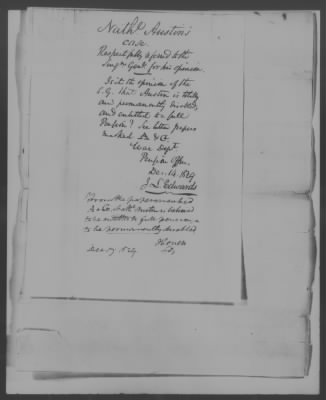 Nathl. Austin's
case.
Respectfully referred to the
Surgn. Genl. for his opinion.
Is it the opinion of the
S.G. that Austin is totally
and permanently disabled,
and entitled to full
Pension? See letter papers
marked A & G
War Dept
Pension Office
Dec. 14. 1829
J. L. Edwards
From the papers marked
Nathl. Austin is
to be entitled to full pension, &
to be permanently disabled
Decr 17. 1829